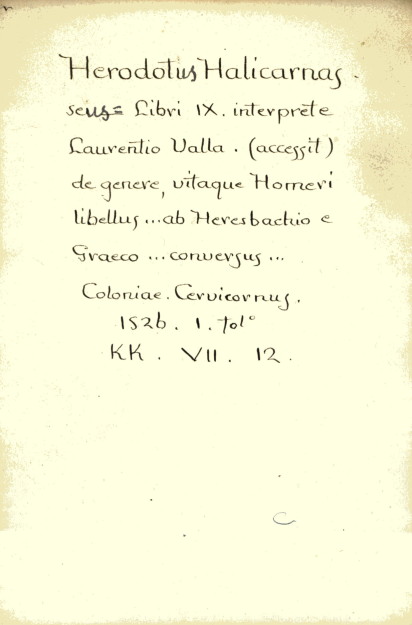 Herodotus Halicarnas
seus= Libri IX. interprete
Laurentio Valla. (accessit)
de genere, vitaque Homeri
libellus...ab Heresbachio e
Graeco ... conversus ...
Coloniae. Cervicornus.
1526. 1. fol°
KK. VII. 12.
C